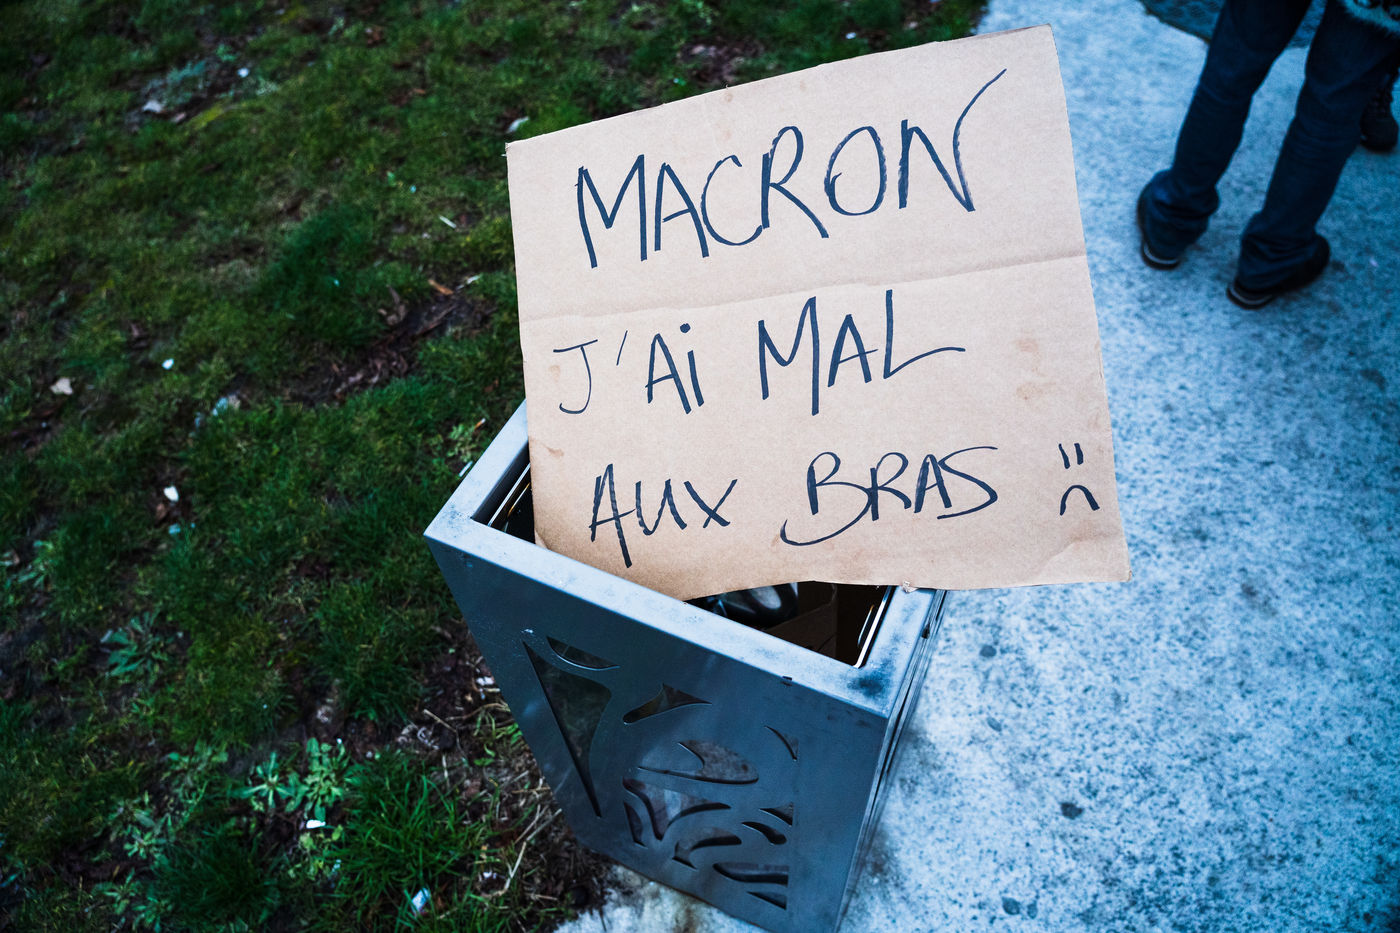 MACRON
J'Ai MAL
AUX BRAS :(